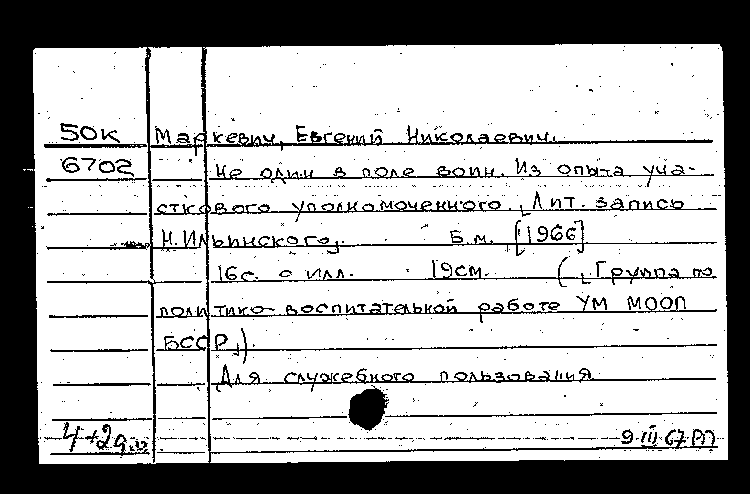 50к Маркевич, Евгений Николаевич.
6702 Не один в поле воин. Из опыта уча-
сткового уполномоченного. [Лит. запись
Н. Ильинского]. Б.м. [1966]
16с. с илл. 19см. ([Группа по
политико-воспитательной работе УМ МООП
БССР]).
Для служебного пользования
4+2д 9 III 67 РП